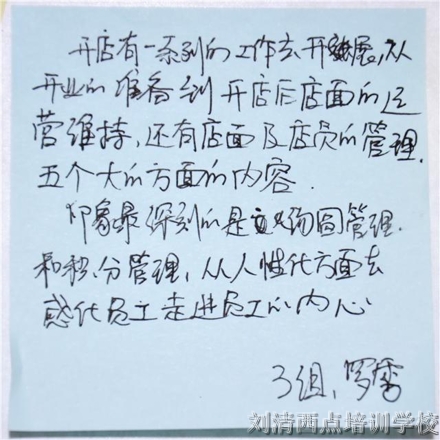 开店有一系列的工作去开展,从
开业的准备到开店后店面的运
营维持,还有店面及店员的管理.
五个大的方面的内容.
印象最深刻的是询图管理.
和积分管理,从人性化方面去
感化员工走进员工的内心
3组,罗
刘清西点培训学校